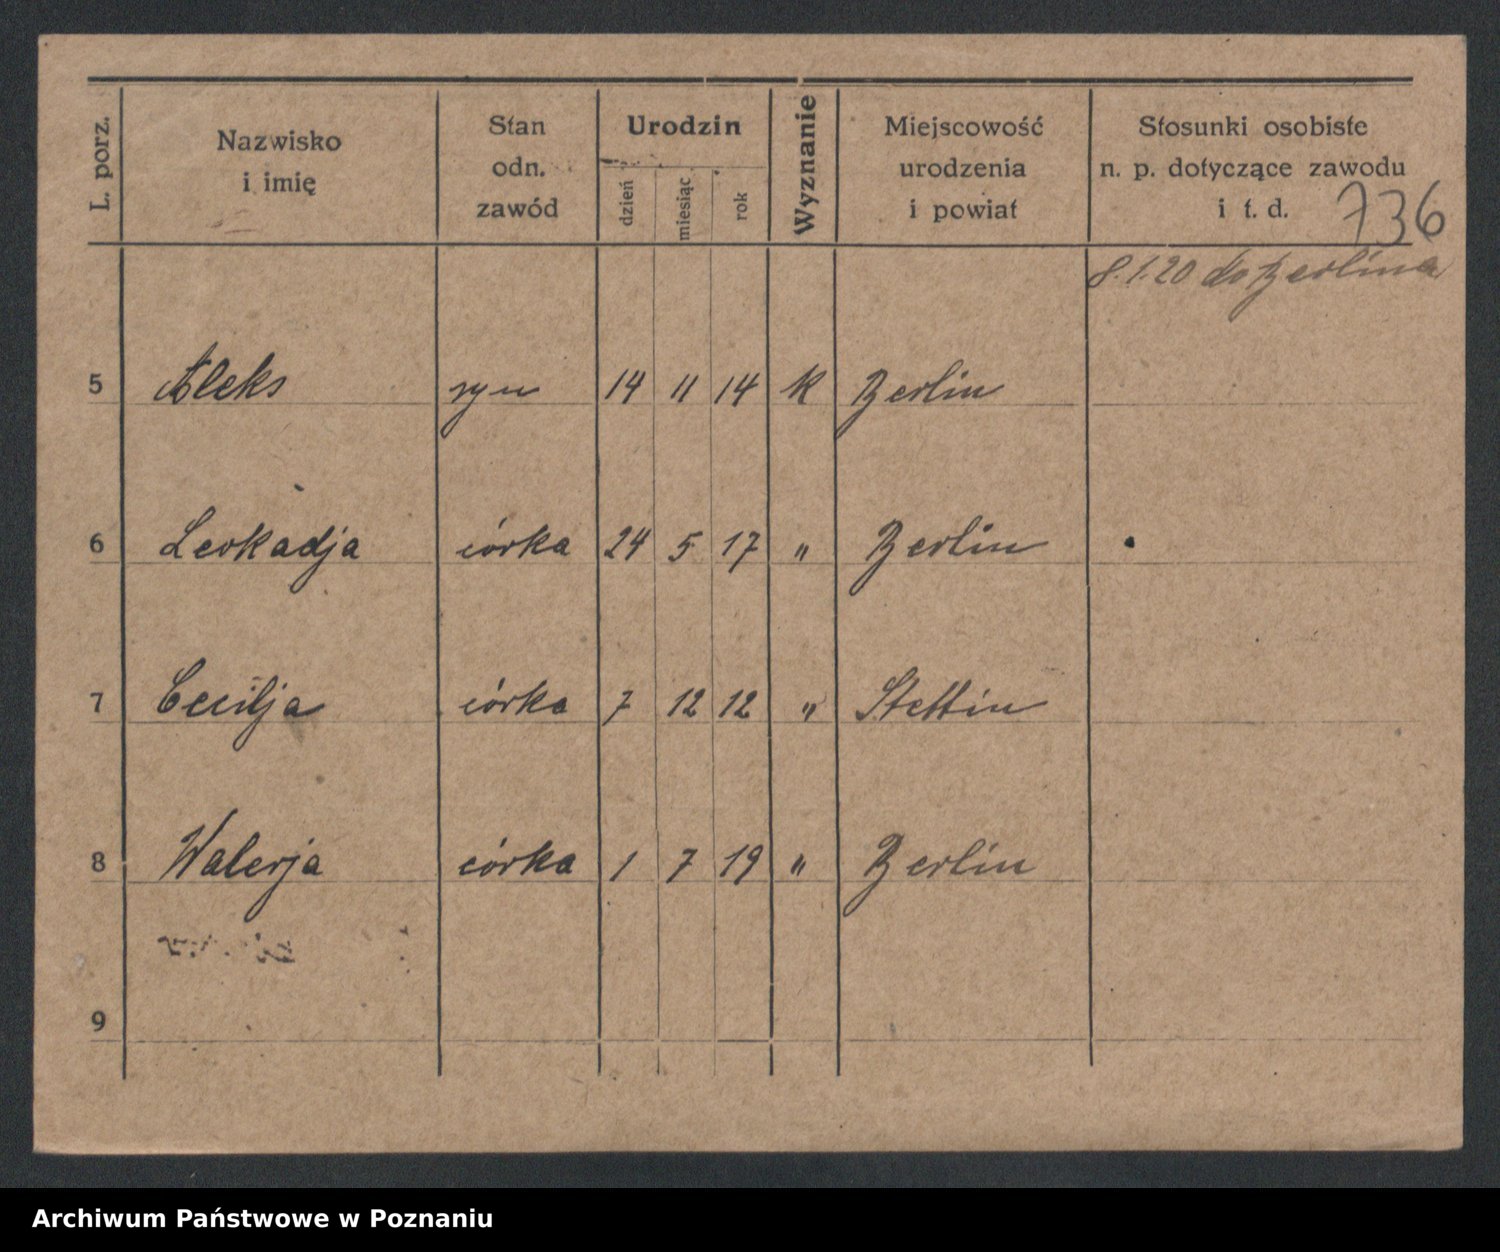 L. porz.
Nazwisko
i imię
Stan
odn.
zawód
Urodzin
dzień
miesiąc
rok
Wyznanie
Miejscowość
urodzenia
i powiat
Stosunki osobiste
n. p. dotyczące zawodu
i t. d.
736
8.1.20 do Berlina
5 Aleks syn 14 11 14 K Berlin
6 Leokadja córka 24 5 17 " Berlin
7 Cecilja córka 7 12 12 " Stettin
8 Walerja córka 1 7 19 " Berlin
9
Archiwum Państwowe w Poznaniu